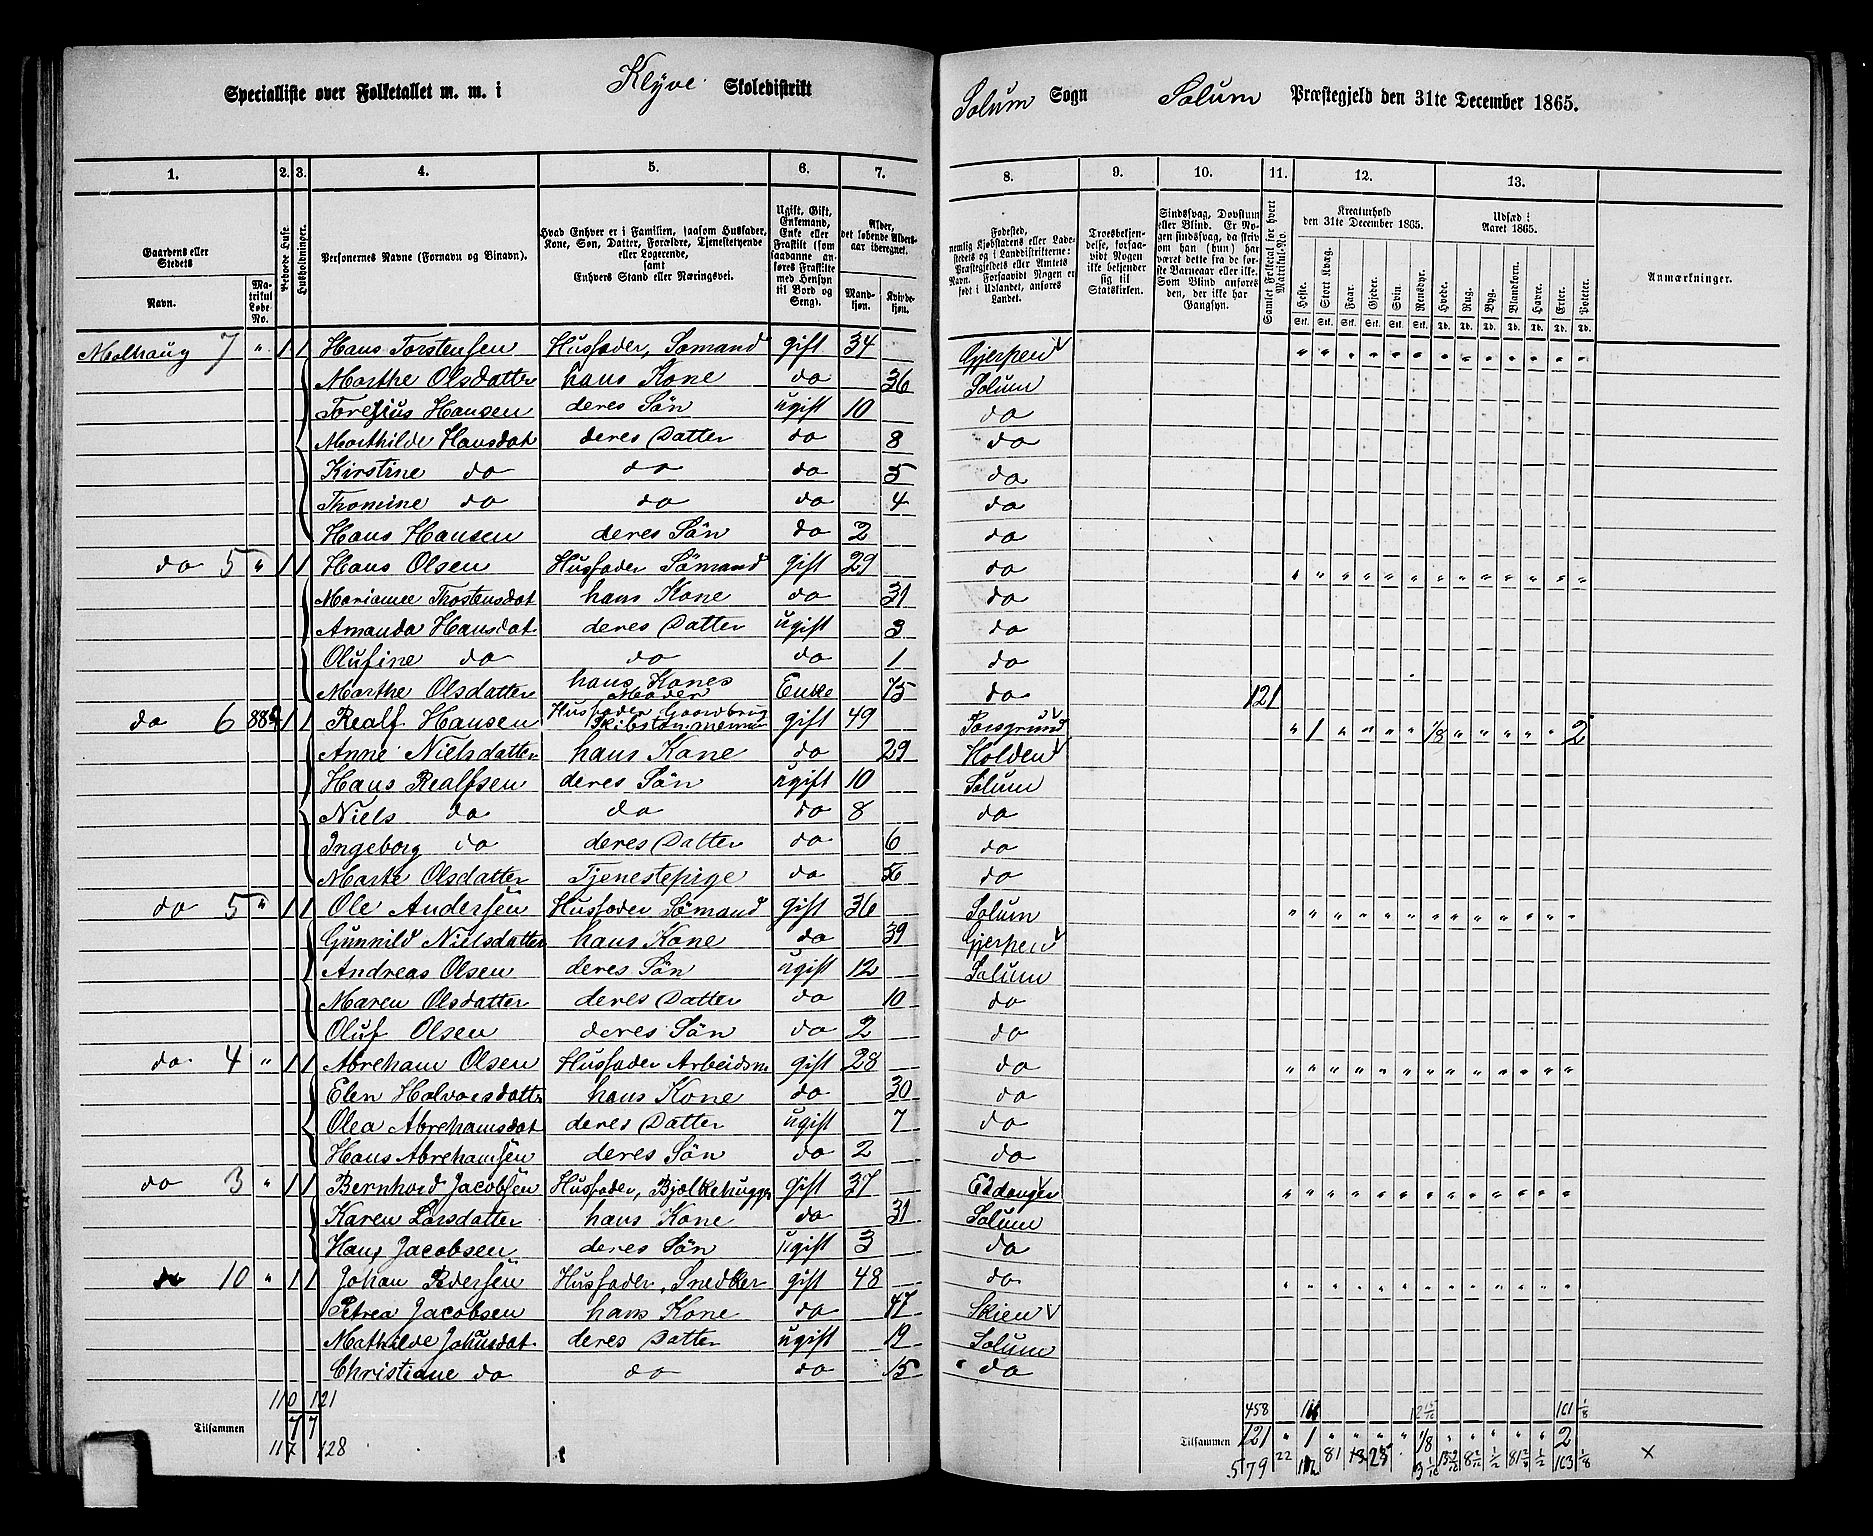 Specialliste over Folketallet m. m. i Klyve Skoledistrikt
Solum Sogn Solum Præstegjeld den 31te December 1865.
1. 2. 3. 4. 5. 6. 7. 8. 9. 10. 11. 12. 13.
Gaardens eller Stedets
Navn.
Matrikul Løbe-No.
Beboede Huse.
Husholdninger.
Personernes Navne (Fornavn og Binavn).
Hvad Enhver er i Familien, saasom Husfader, Kone, Søn, Datter, Forældre, Tjenestetyende eller Logerende, samt Enhvers Stand eller Næringsvei.
Ugift, Gift, Enkemand, Enke eller Fraskilt (som saadanne anføres Fraskilte med Hensyn til Bord og Seng).
Alder, det løbende Aldersaar iberegnet.
Mandkjøn. Kvindekjøn.
Fødested, nemlig Kjøbstadens eller Ladestedets og i Landdistrikterne: Præstegjeldets eller Amtets Navn. Forsaavidt Nogen er født i Udlandet, anføres Landet.
Troesbekjendelse, forsaavidt Nogen ikke bekjender sig til Statskirken.
Sindssvag, Døvstum eller Blind. Er Nogen sindssvag, da skrives om han (hun) har været dette fra de første Barneaar eller ikke. Som Blind anføres den, der ikke har Gangsyn.
Gamlet Folketal for hvert Matrikul-No.
Kreaturhold den 31te December 1865.
Heste. Stort Kvæg. Faar. Gjeder. Svin. Rensdyr.
Stk. Stk. Stk. Stk. Stk. Stk.
Udsæd i Aaret 1865.
Hvede. Rug. Byg. Blandkorn. Havre. Erter. Poteter.
Td. Td. Td. Td. Td. Td. Td.
Anmærkninger.
Melhaug 7 " 1 1 Hans Torstensen Husfader, Sømand gift 34 Gjerpen " " " " " " " " " " " " "
Marthe Olsdatter hans Kone do 36 Solum
Hansen deres Søn ugift 10 do
Marthilde Hansdat deres Datter do 8 do
Kirstine do do do 5 do
Thomine do do do 4 do
Hans Hansen deres Søn do 2 do
do 5 " 1 1 Hans Olsen Husfader Sømand gift 29 do " " " " " " " " " " " " "
Mariane Thostensdat hans Kone do 31 do
Amanda Hansdat. deres Datter ugift 3 do
Olufine do do do 1 do
Marthe Olsdatter hans Kones Moder Enke 75 do 121
do 6 88 1 1 Realf Hansen Husfader Gaardbrug gift 49 Porsgrund " 1 " " " " 1/8 " " " " " 2
Anne Nielsdatter hans Kone do 29 Holden
Hans Realfsen deres Søn ugift 10 Solum
Niels do do do 8 do
Ingeborg do deres Datter do 6 do
Marte Olsdatter Tjenestepige do do
do 5 " 1 1 Ole Andersen Husfader Sømand gift 36 Solum " " " " " " " " " " " " "
Gunnild Nielsdatter hans Kone do 39 Gjerpen
Andreas Olsen deres Søn ugift 12 Solum
Maren Olsdatter deres Datter do 10 do
Oluf Olsen deres Søn do 2 do
do. 4 " 1 1 Abreham Olsen Husfader Arbeidsm gift 28 do " " " " " " " " " " " " "
Elen Halvorsdatter hans Kone do 30 do
Olea Abrehamsdat deres Datter ugift 7 do
Hans Abrehamsen deres Søn do 2 do
do 3 " 1 1 Bernhard Jacobsen Husfader, Bjelkehugger gift 37 Eidanger " " " " " " " " " " " " "
Karen Larsdatter hans Kone do 31 Solum
Hans Jacobsen deres Søn ugift 3 do
do 10 " 1 1 Johan Pedersen Husfader, Snedker gift 48 do " " " " " " " " " " " " "
Petrea Jacobsen hans Kone do 47 Skien
Mathilde Johusdat. deres Datter ugift 19 Solum
Christiane do do do 15 do
110 121 458 101 1/8
Tilsammen 7 7 Tilsammen 121 " 1 " " " " 1/8 " " " " " 2
117 128 579 22 81 103 1/8 x